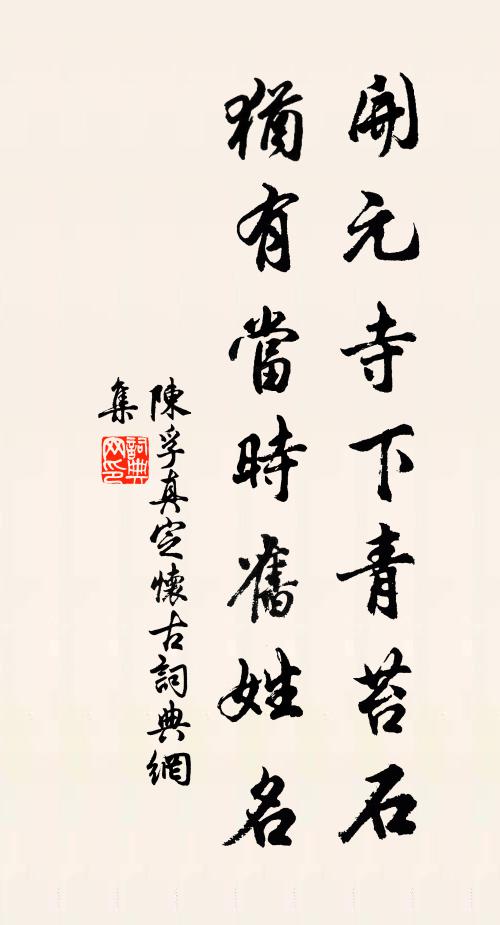 開元寺下青苔石
猶有當時舊姓名
陳孚真定懷古詞典網
集
詞典
网印